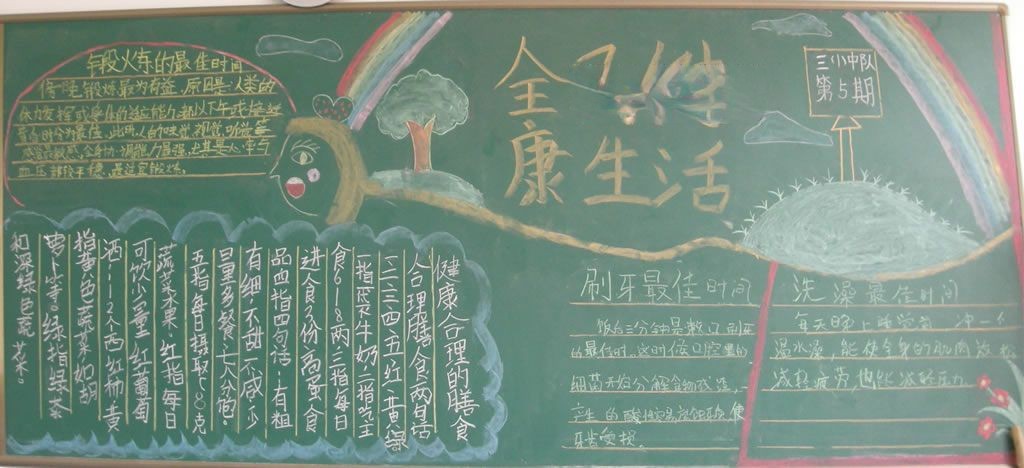 年段火炼的最佳时间
傍晚锻炼最为有益,原因是人类的
体力发挥或身体的适应能力,都以下午或接近
黄昏时分为最佳。此时,人的味觉、视觉、听觉等
感觉最敏感,全身协调能力最强,尤其是心率与
血压都较平稳,最适宜锻炼。
全
性
康生活
三小中队
第5期
健康合理的膳食
合理膳食,两句话
一二三四五,红黄绿
一指一天牛奶,二指吃主
食6-8两,三指每日
进食3份高蛋食
品,四指四句话:有粗
有细、不甜不咸、少
量多餐、七八分饱。
五指每日摄取500克
蔬菜果。红指每日
可饮少量红葡萄
酒,1-2个西红柿。黄
指黄色蔬菜如胡
萝卜等。绿指绿茶
和深绿色蔬菜。
刷牙最佳时间
饭后三分钟是漱口、刷牙
的最佳时,这时候口腔里的
细菌开始分解食物残渣,
产生的酸性易溶钙质,使
牙齿受损。
洗澡最佳时间
每天晚上睡觉前,冲一个
温水澡,能使全身的肌肉放松
减轻疲劳也能减轻压力